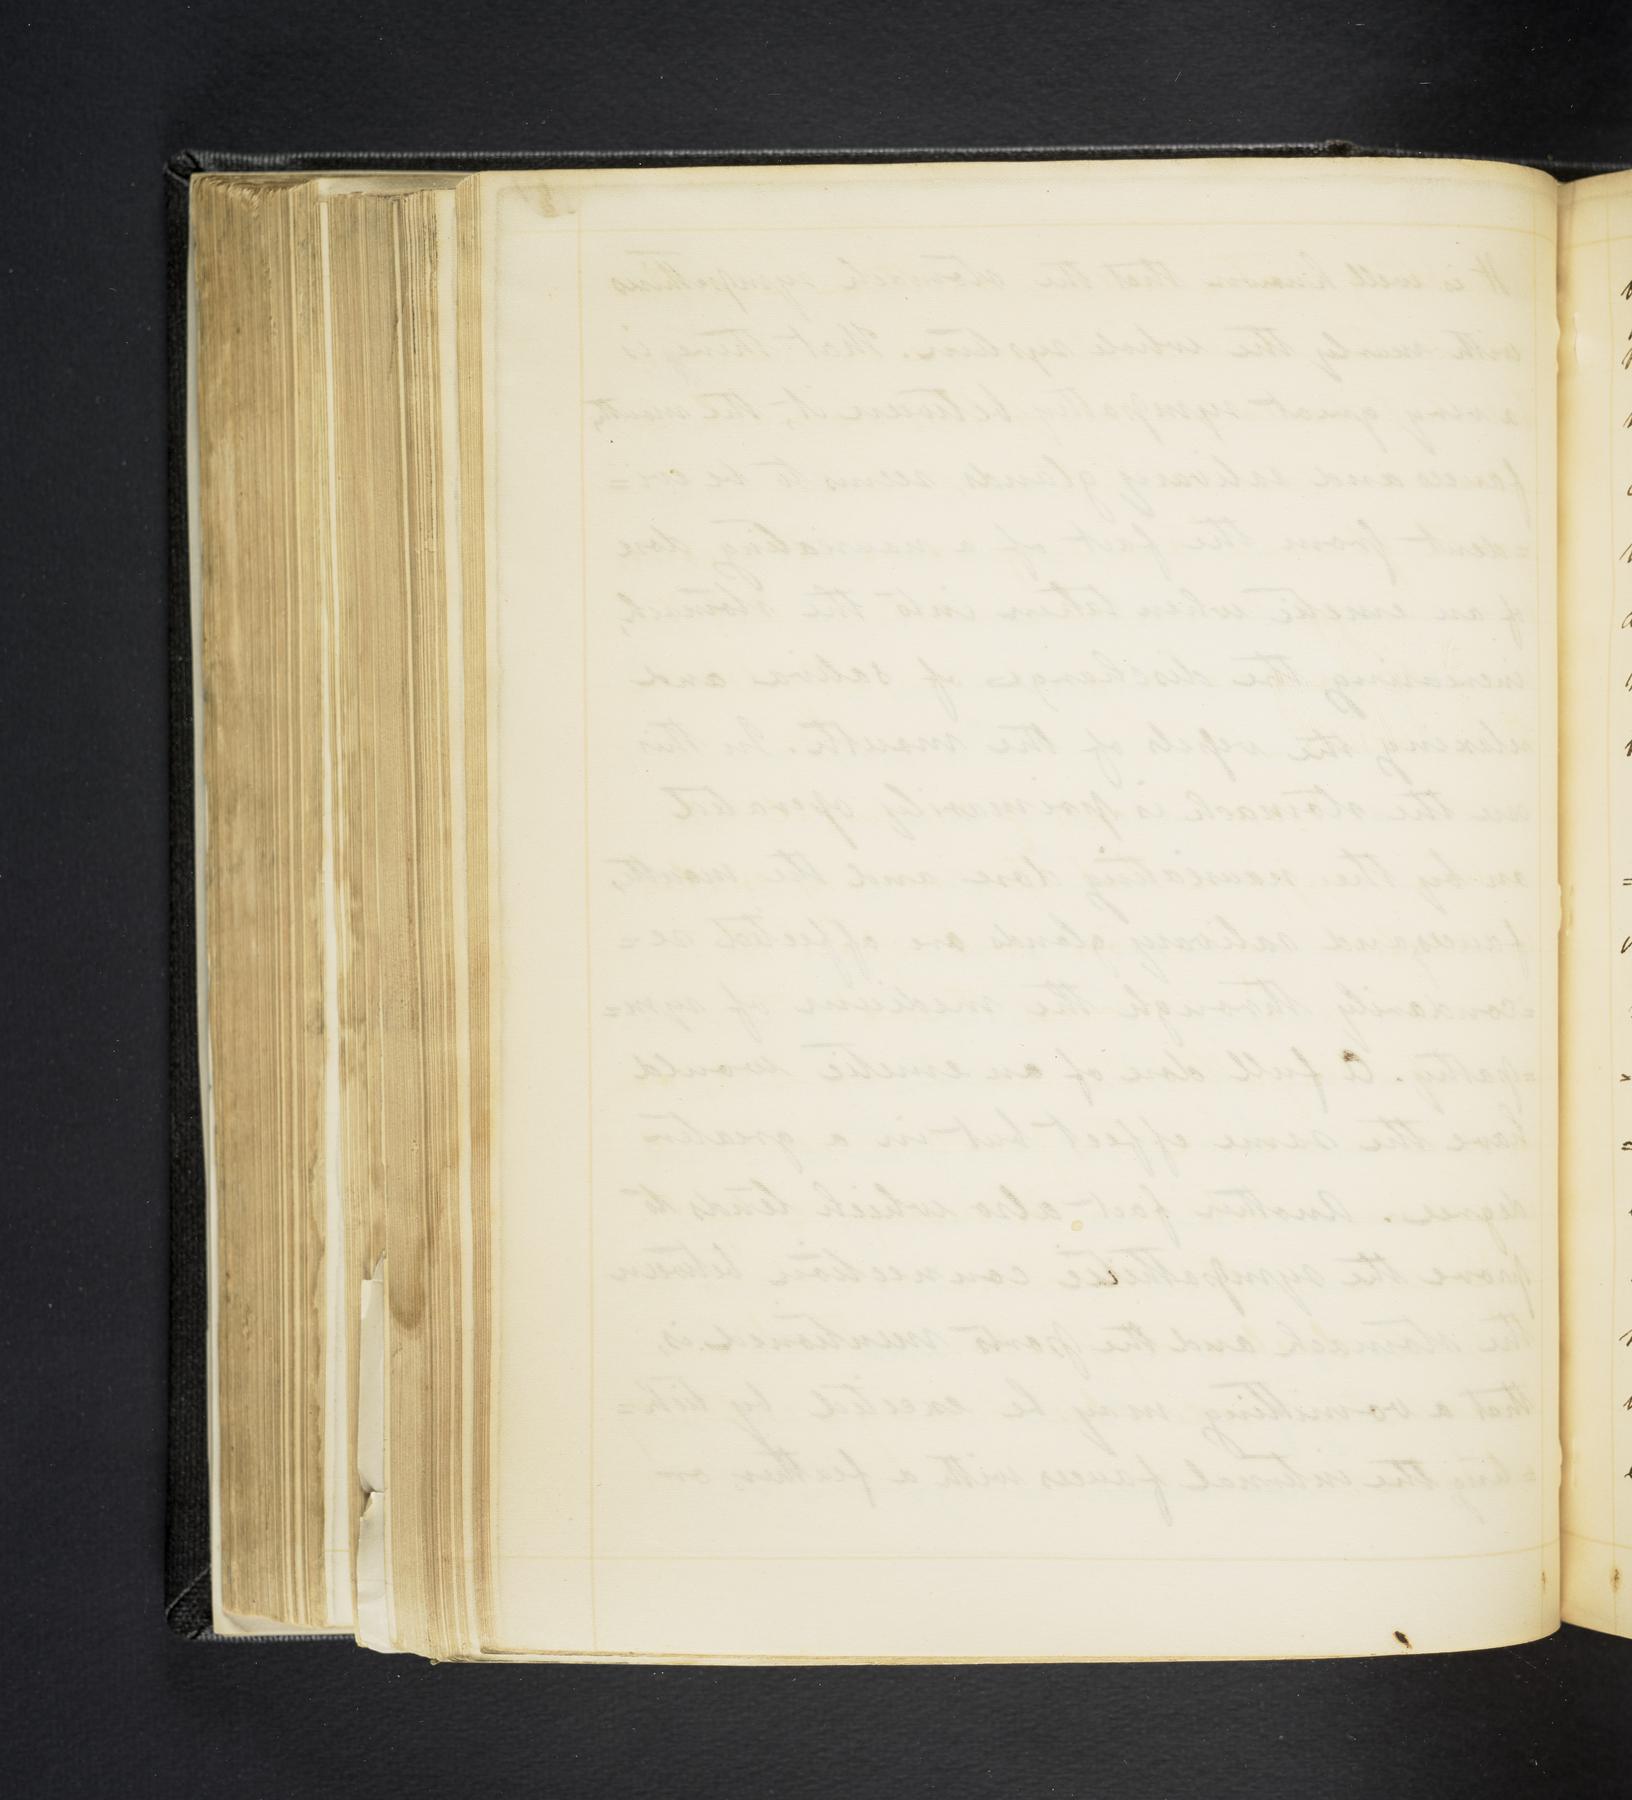 It is well known that the stomach sympathies
with nearly the whole system. That there is
a very great sympathy between it, the mouth,
fauces and salivary glands seems to be evi=
=dent from the fact of a nauseating dose
of an emetic when taken into the stomach,
increasing the discharge of saliva and
relaxing the vessels of the mouth. In this
the stomach is primarily operated
on by the nauseating dose and the mouth,
fauces and salivary glands are affected se=
=condarily through the medium of sym=
=pathy. A full dose of an emetic would
have the same effect but in a greater
degree. Another fact also which tends to
prove the sympathetic connection between
the stomach and the parts mentioned is,
that a vomitting may be excited by tick=
=ling the internal fauces with a feather or